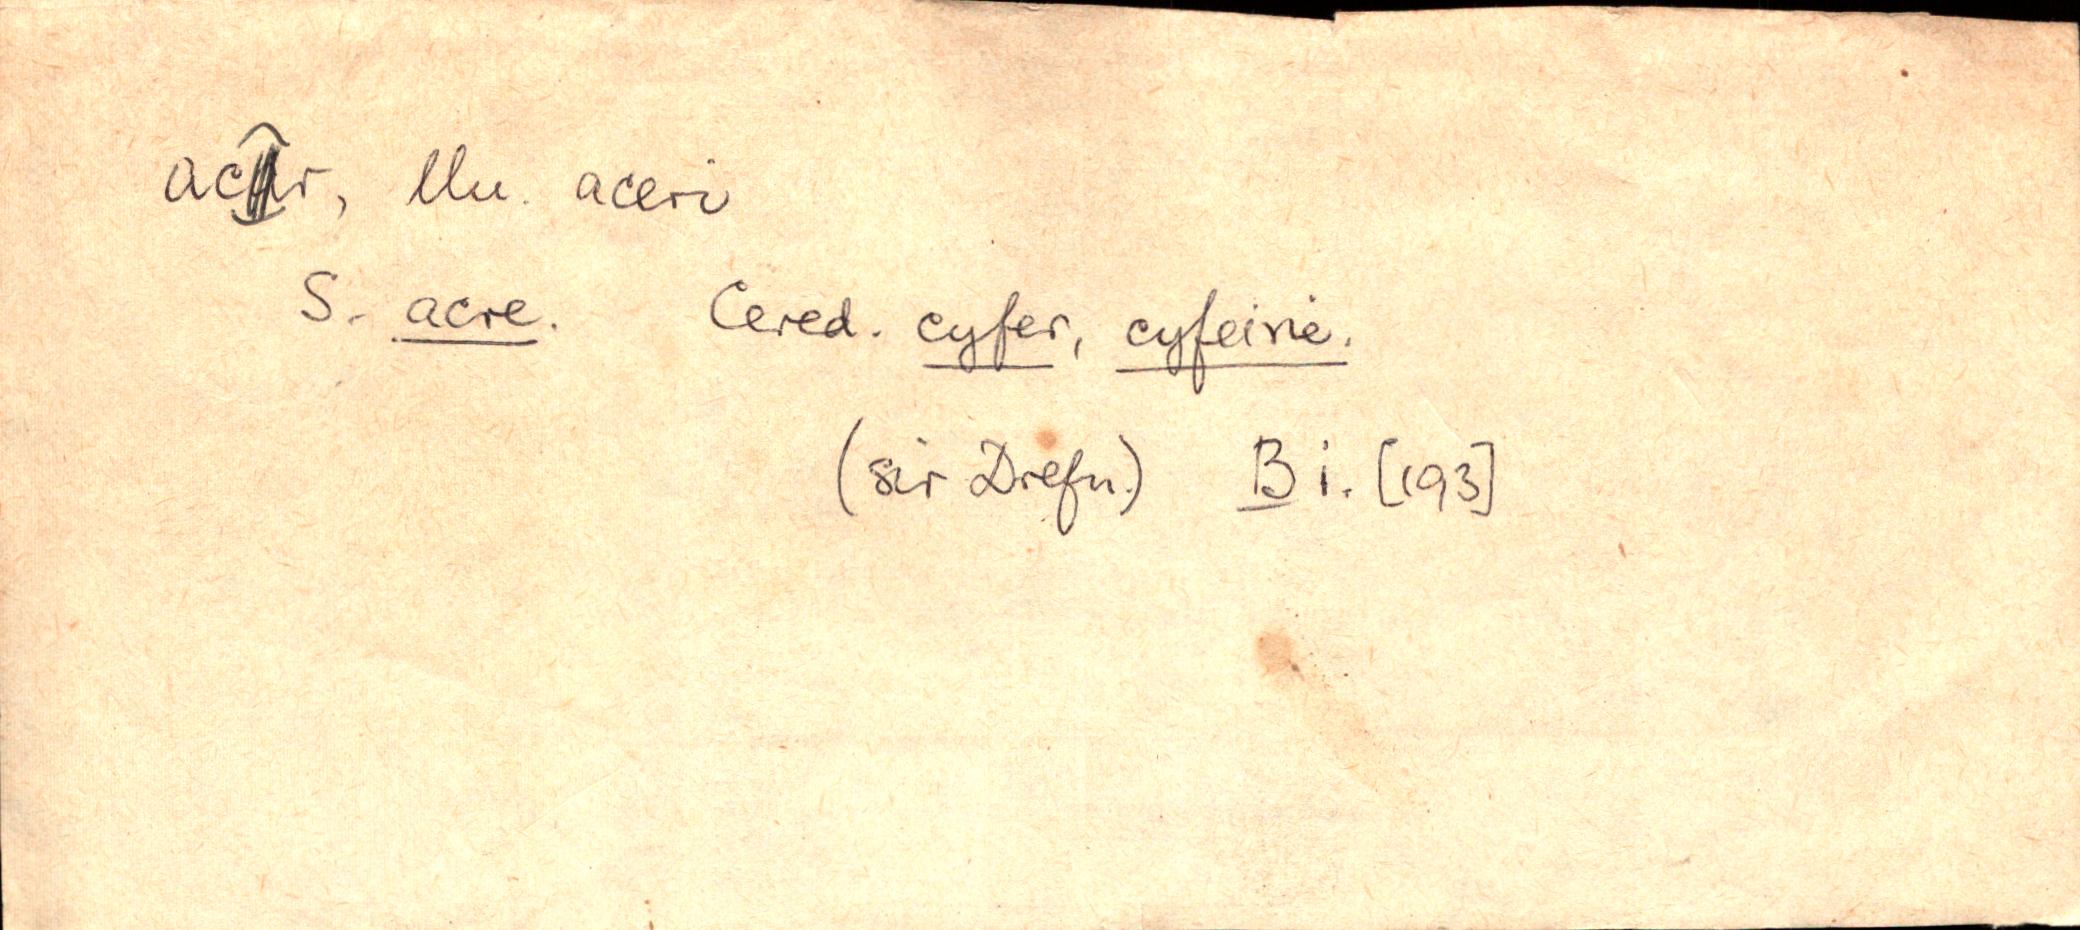 acr, llu. aceri
S. acre. Cered. cyfer, cyfeirie.
(sir Drefn.) B i. [193]